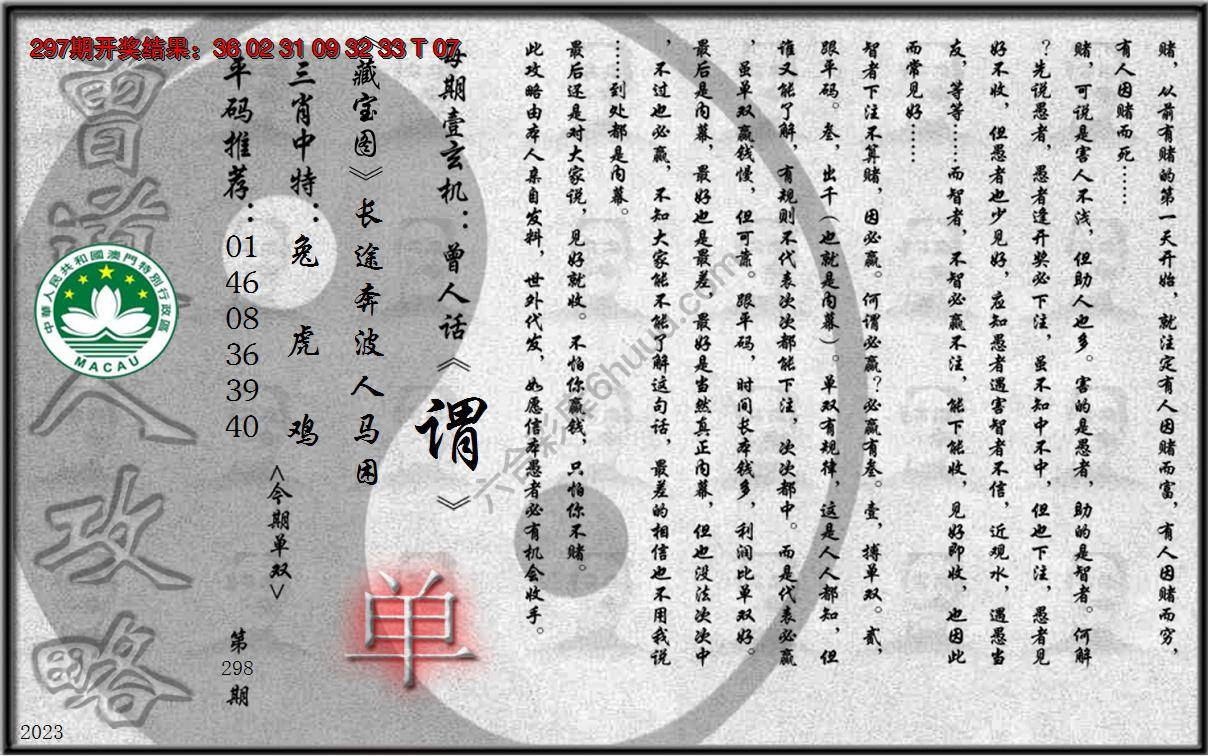 297期开奖结果：36 02 31 09 32 33 T 07
赌，从前有赌的第一天开始，就注定有人因赌而富，有人因赌而穷，
有人因赌而死……
赌，可说是害人不浅，但助人也多。害的是愚者，助的是智者。何解
？先说愚者，愚者逢开奖必下注，虽不知中不中，但也下注，愚者见
好不收，但愚者也少见好，应知愚者遇害智者不信，近观水，遇愚当
友，等等……而智者，不智必赢不注，能下能收，见好即收，也因此
而常见好……
智者下注不算赌，因必赢。何谓必赢？必赢有叁。壹，搏单双。贰，
跟平码。叁，出千（也就是内幕）。单双有规律，这是人人都知，但
谁又能了解，有规则不代表次次都能下注，次次都中。而是代表必赢
，虽单双赢钱慢，但可靠。跟平码，时间长本钱多，利润比单双好。
最后是内幕，最好也是最差，最好是当然真正内幕，但也没法次次中
，不过也必赢，不知大家能不能了解这句话，最差的相信也不用我说
……到处都是内幕。
最后还是对大家说，见好就收。不怕你赢钱，只怕你不赌。
此攻略由本人亲自发料，世外代发，如愿信本愚者必有机会收手。
每期壹玄机：曾人话《谓》
《藏宝图》长途奔波人马困
三肖中特：兔 虎 鸡
<今期单双>
单
平码推荐：01 46 08 36 39 40
第298期
曾道人攻略
中華人民共和國澳門特別行政區
MACAU
2023